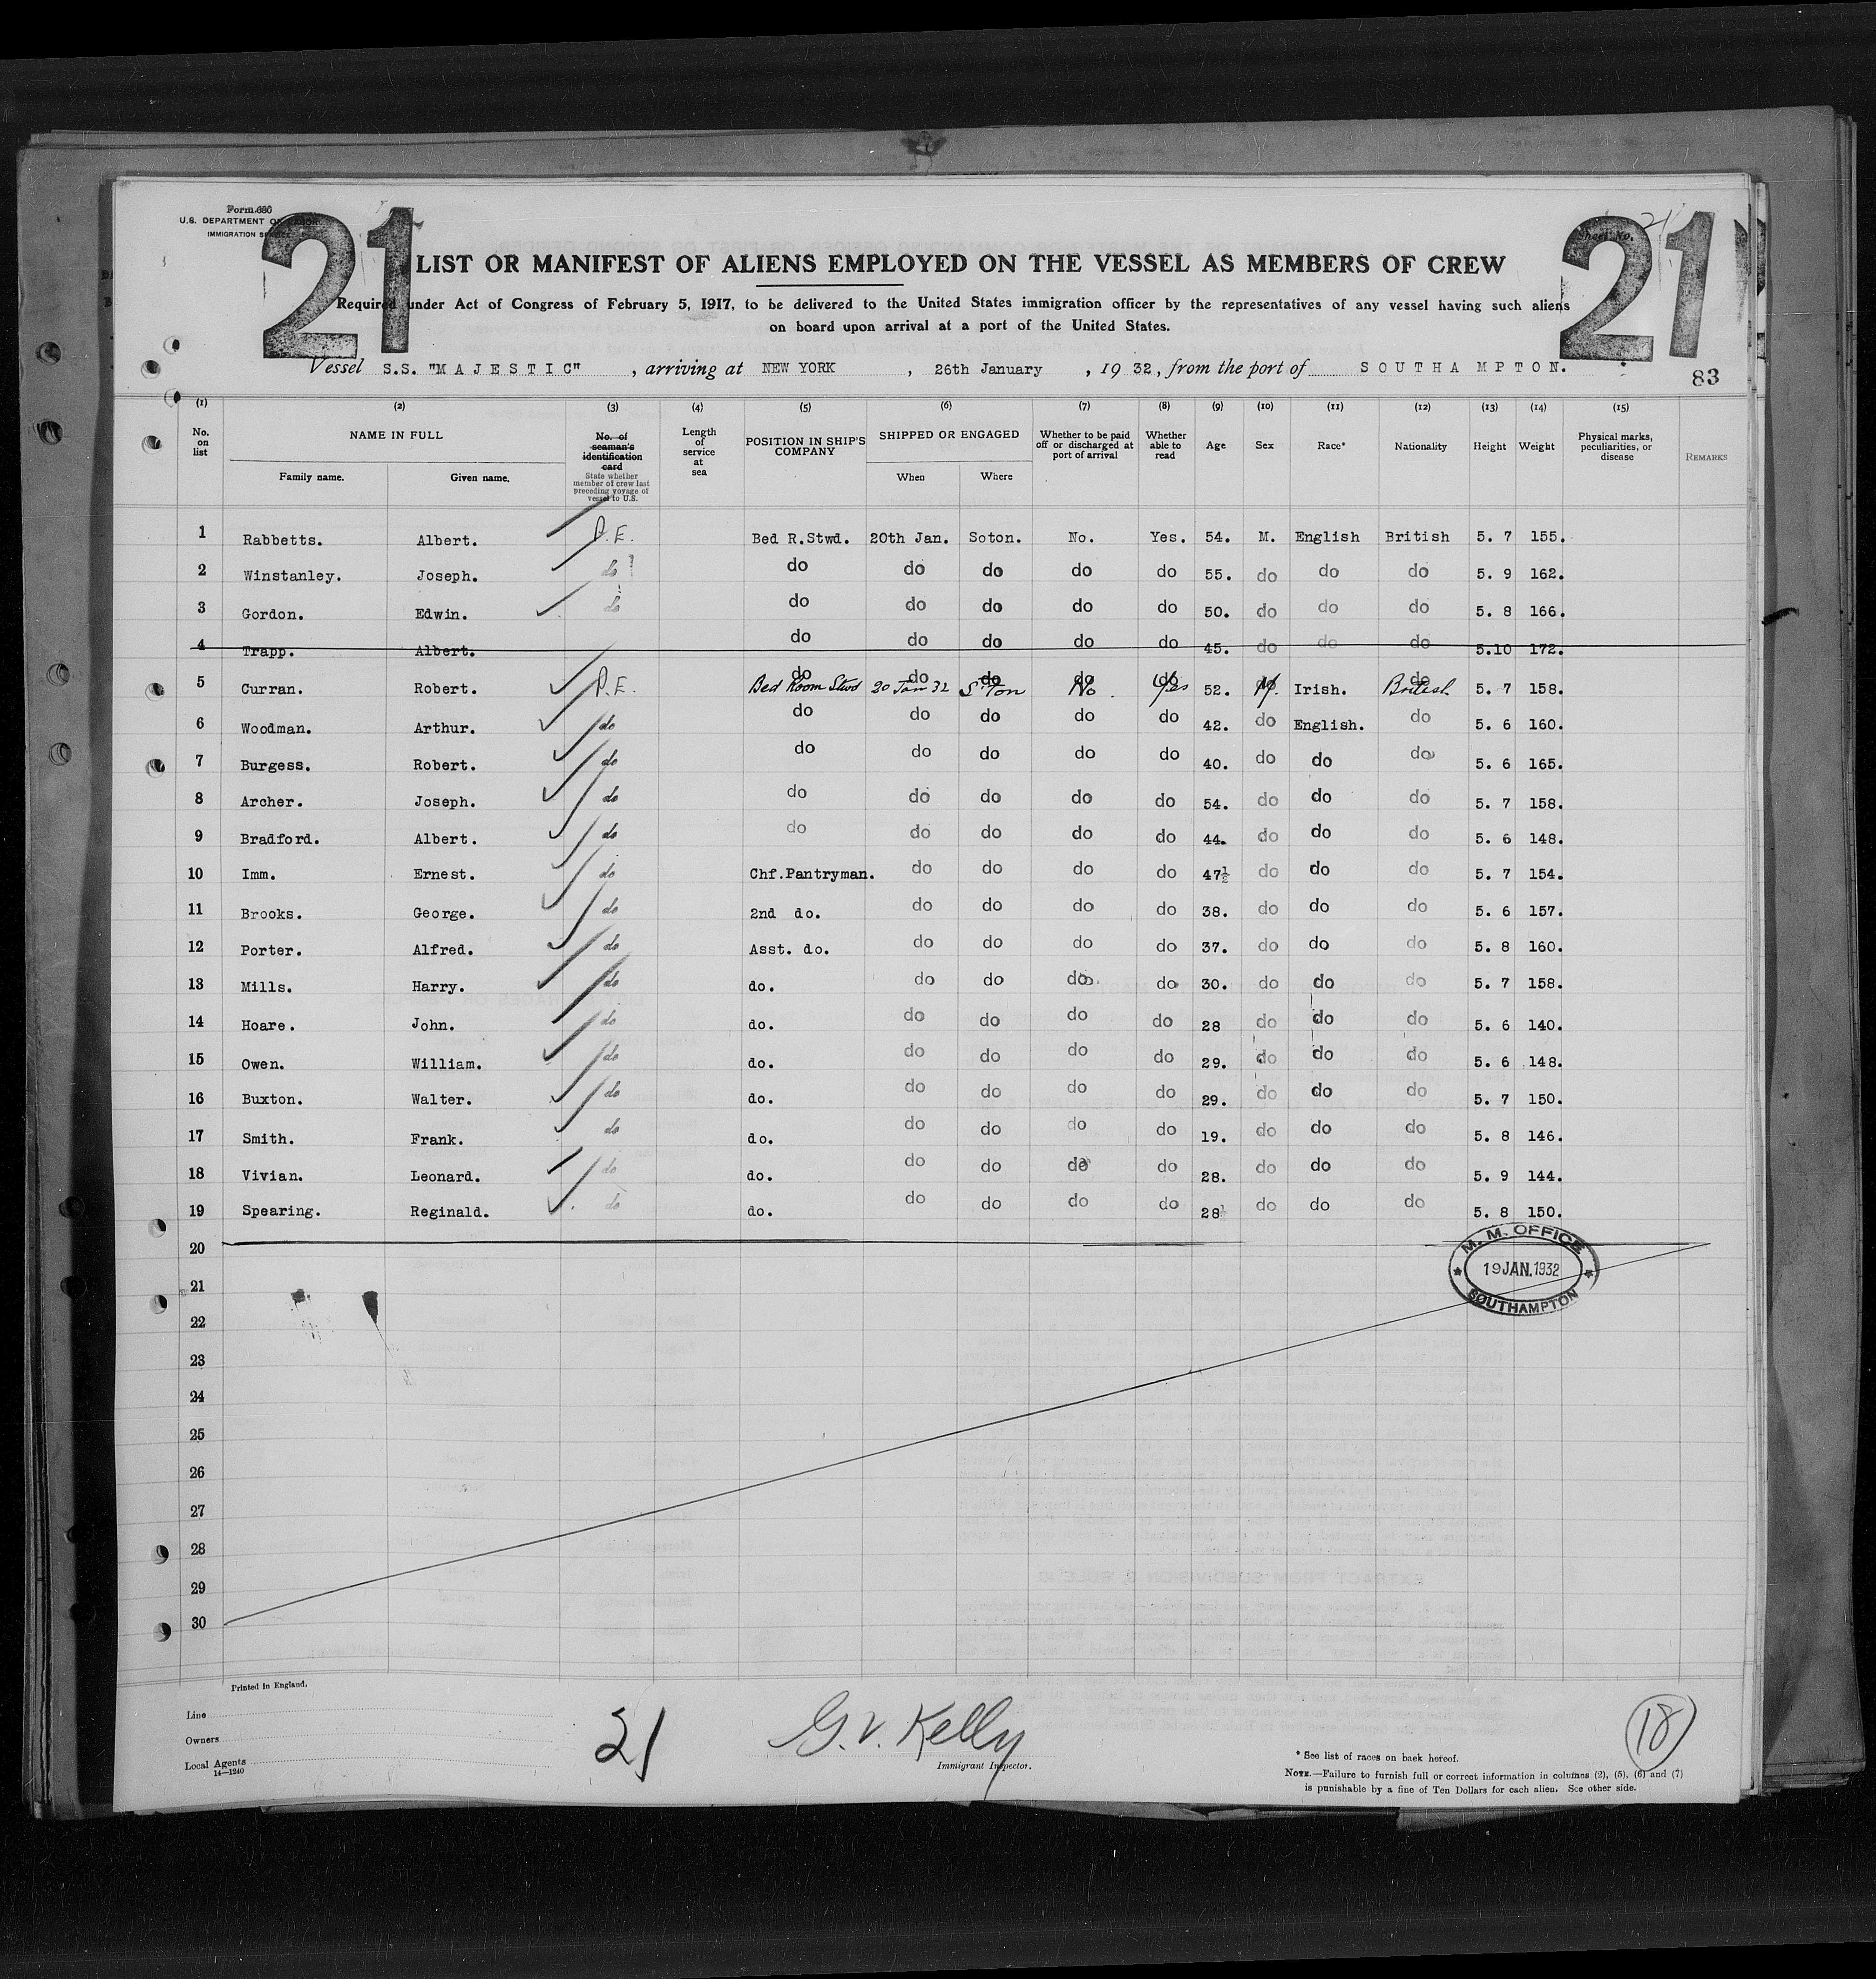 Form 686
U.S. DEPARTMENT OF LABOR
IMMIGRATION SERVICE
21
21
Sheet No. 21
LIST OR MANIFEST OF ALIENS EMPLOYED ON THE VESSEL AS MEMBERS OF CREW
Required under Act of Congress of February 5, 1917, to be delivered to the United States immigration officer by the representatives of any vessel having such aliens
on board upon arrival at a port of the United States.
Vessel S.S. "MAJESTIC", arriving at NEW YORK, 26th January, 1932, from the port of SOUTHAMPTON.
83
(1) (2) (3) (4) (5) (6) (7) (8) (9) (10) (11) (12) (13) (14) (15)
No. on list
NAME IN FULL
Family name. Given name.
No. of seaman's identification card
State whether member of crew last preceding voyage of vessel to U.S.
Length of service at sea
POSITION IN SHIP'S COMPANY
SHIPPED OR ENGAGED
When Where
Whether to be paid off or discharged at port of arrival
Whether able to read
Age
Sex
Race*
Nationality
Height
Weight
Physical marks, peculiarities, or disease
REMARKS
1 Rabbetts. Albert. P.E. Bed R.Stwd. 20th Jan. Soton. No. Yes. 54. M. English British 5. 7 155.
2 Winstanley. Joseph. do do do do do do 55. do do do 5. 9 162.
3 Gordon. Edwin. do do do do do do 50. do do do 5. 8 166.
4 Trapp. Albert. do do do do do 45. do do do 5.10 172.
5 Curran. Robert. P.E. do Bed Room Stwd do 20 Jan 32 do S'Ton do No. do Yes 52. do M. Irish. do British 5. 7 158.
6 Woodman. Arthur. do do do do do do 42. do English. do 5. 6 160.
7 Burgess. Robert. do do do do do do 40. do do do 5. 6 165.
8 Archer. Joseph. do do do do do do 54. do do do 5. 7 158.
9 Bradford. Albert. do do do do do do 44. do do do 5. 6 148.
10 Imm. Ernest. do Chf.Pantryman. do do do do 47½ do do do 5. 7 154.
11 Brooks. George. do 2nd do. do do do do 38. do do do 5. 6 157.
12 Porter. Alfred. do Asst. do. do do do do 37. do do do 5. 8 160.
13 Mills. Harry. do do. do do do do 30. do do do 5. 7 158.
14 Hoare. John. do do. do do do do 28 do do do 5. 6 140.
15 Owen. William. do do. do do do do 29. do do do 5. 6 148.
16 Buxton. Walter. do do. do do do do 29. do do do 5. 7 150.
17 Smith. Frank. do do. do do do do 19. do do do 5. 8 146.
18 Vivian. Leonard. do do. do do do do 28. do do do 5. 9 144.
19 Spearing. Reginald. do do. do do do do 28½ do do do 5. 8 150.
20
M. M. OFFICE
19 JAN. 1932
SOUTHAMPTON
21
22
23
24
25
26
27
28
29
30
Printed in England.
Line
Owners
Local Agents
14—1240
21
G.V. Kelly
Immigrant Inspector.
18
* See list of races on back hereof.
NOTE.—Failure to furnish full or correct information in columns (2), (5), (6) and (7)
is punishable by a fine of Ten Dollars for each alien. See other side.